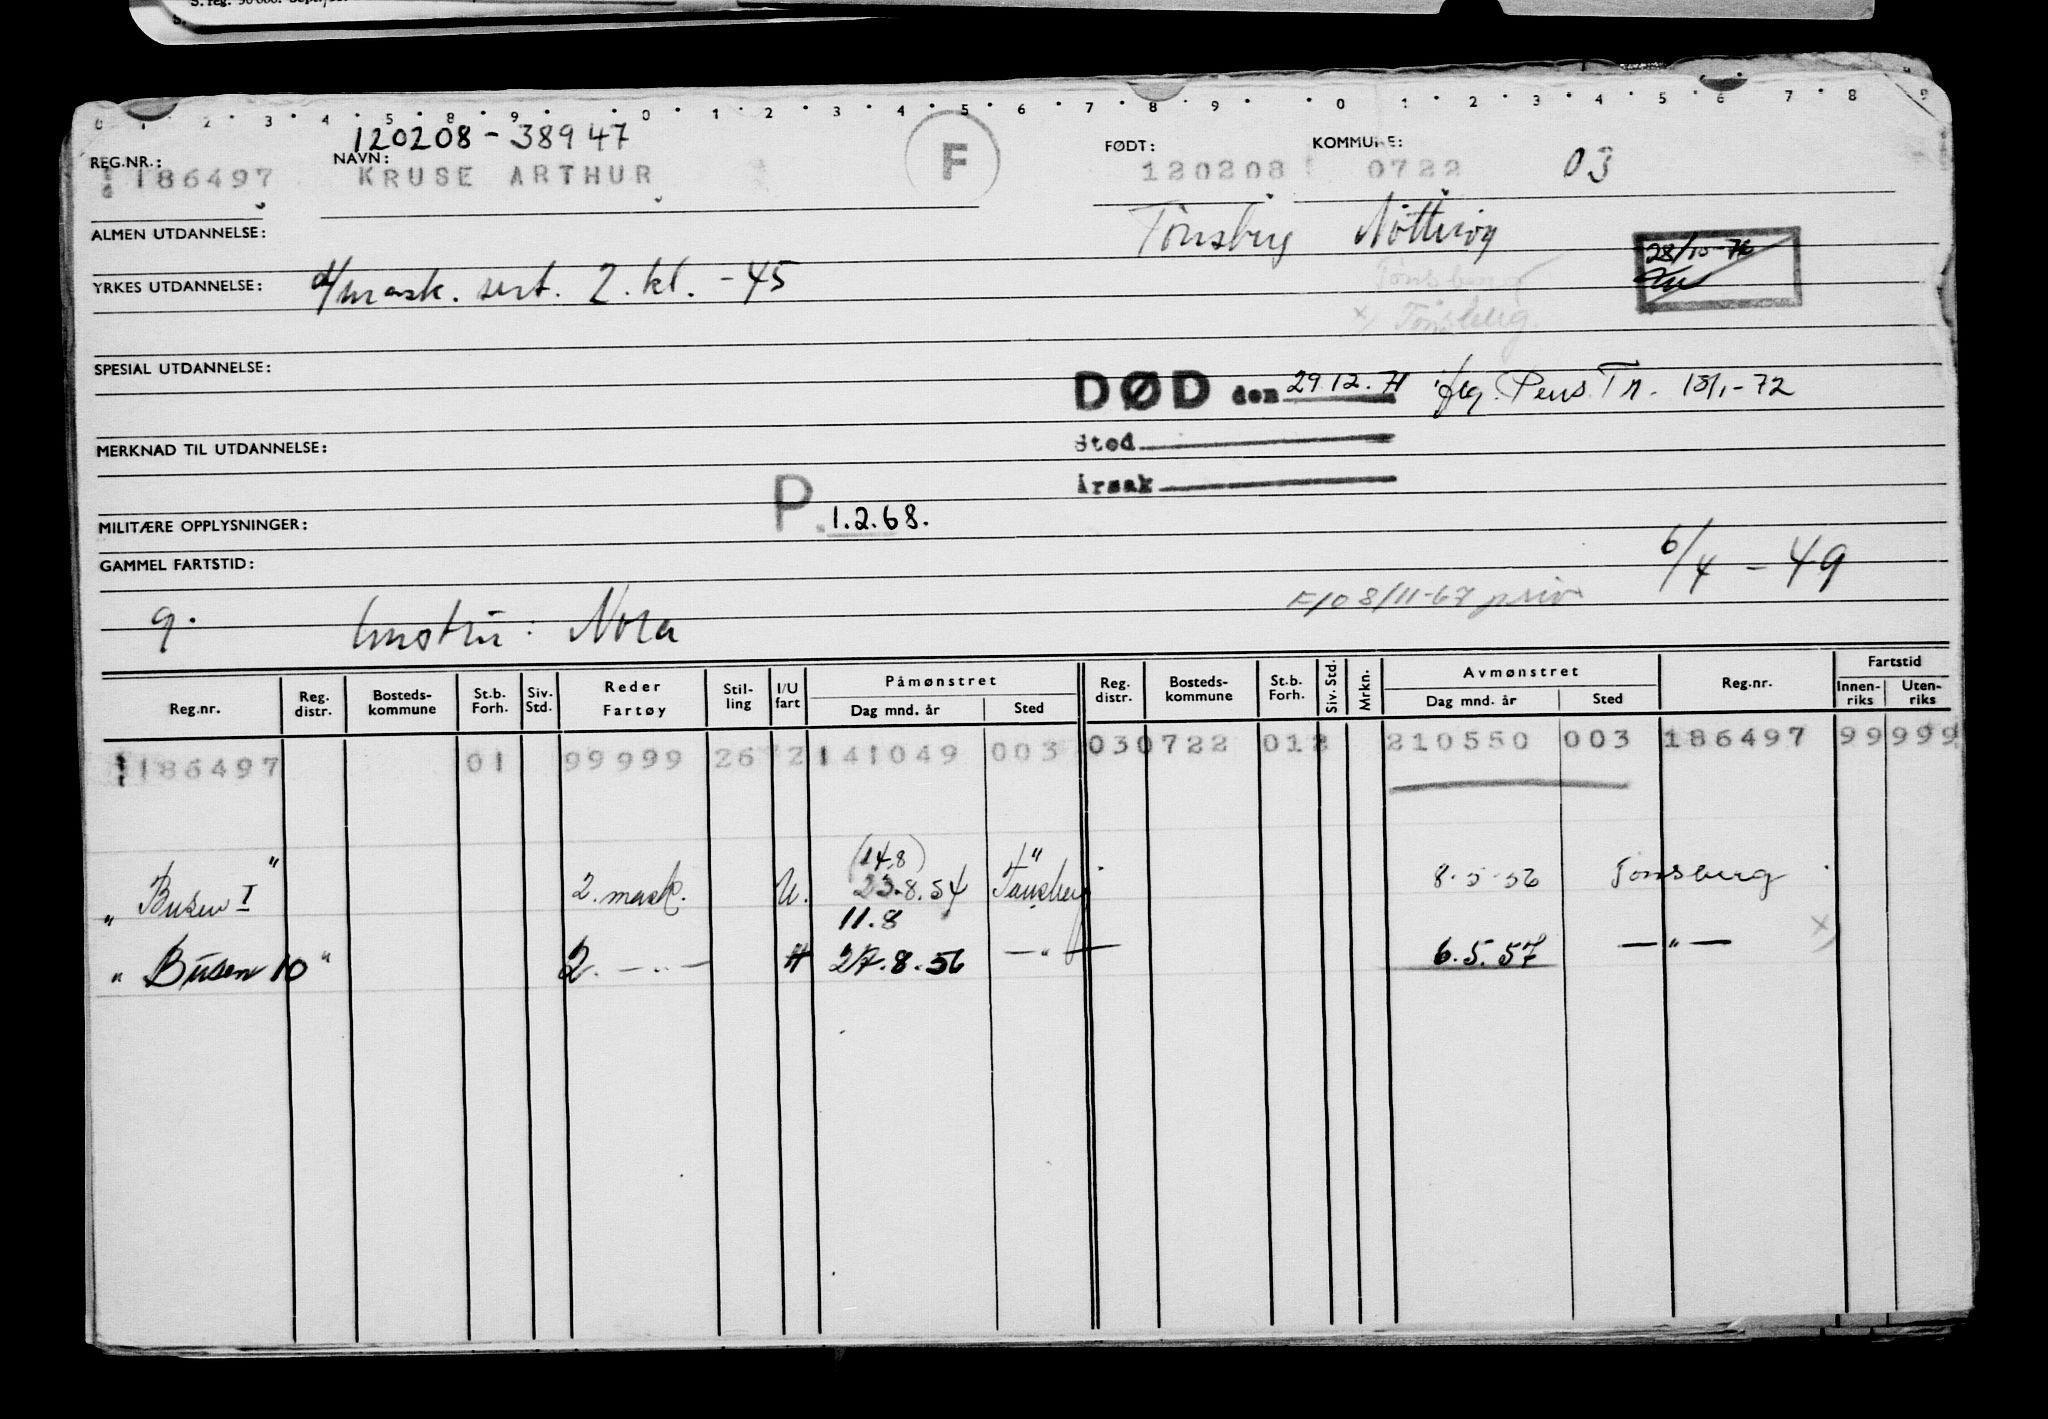 0 1 2 3 4 5 8 9 0 1 2 3 4 5 6 7 8 9 0 1 2 3 4 5 6 7 8 9
120208-38947
REG.NR.: NAVN: F FØDT: KOMMUNE:
186497 KRUSE ARTHUR 120208 0722 03
ALMEN UTDANNELSE: Tönsberg Nötterøy
28/10-76
YRKES UTDANNELSE: d/mask. sert. 2. kl. -45
Tönsberg
x) Tönsberg
SPESIAL UTDANNELSE:
DØD den 29.12.71 iflg. Pens. Tr. 13/1-72
MERKNAD TIL UTDANNELSE: Sted
Årsak
P. 1.2.68.
MILITÆRE OPPLYSNINGER:
GAMMEL FARTSTID: 6/4 - 49
F/0 8/11-67 priv
g. hustru: Nora
Fartstid
Reg.nr. Reg. distr. Bosteds- kommune St.b. Forh. Siv. Std. Reder Fartøy Stil- ling I/U fart Påmønstret Dag mnd. år Sted Reg. distr. Bosteds- kommune St.b. Forh. Siv. Std. Mrkn. Avmønstret Dag mnd. år Sted Reg.nr. Innen- riks Uten- riks
186497 01 99999 26 2 141049 003 030722 012 210550 003 186497 99999
(14.8)
"Busen I" 2. mask. U. 23.8.54 Tønsberg 8-5-56 Tønsberg
11.8
"Busen 10" 2. —"— H 27.8.56 —"— 6.5.57 —"— x)